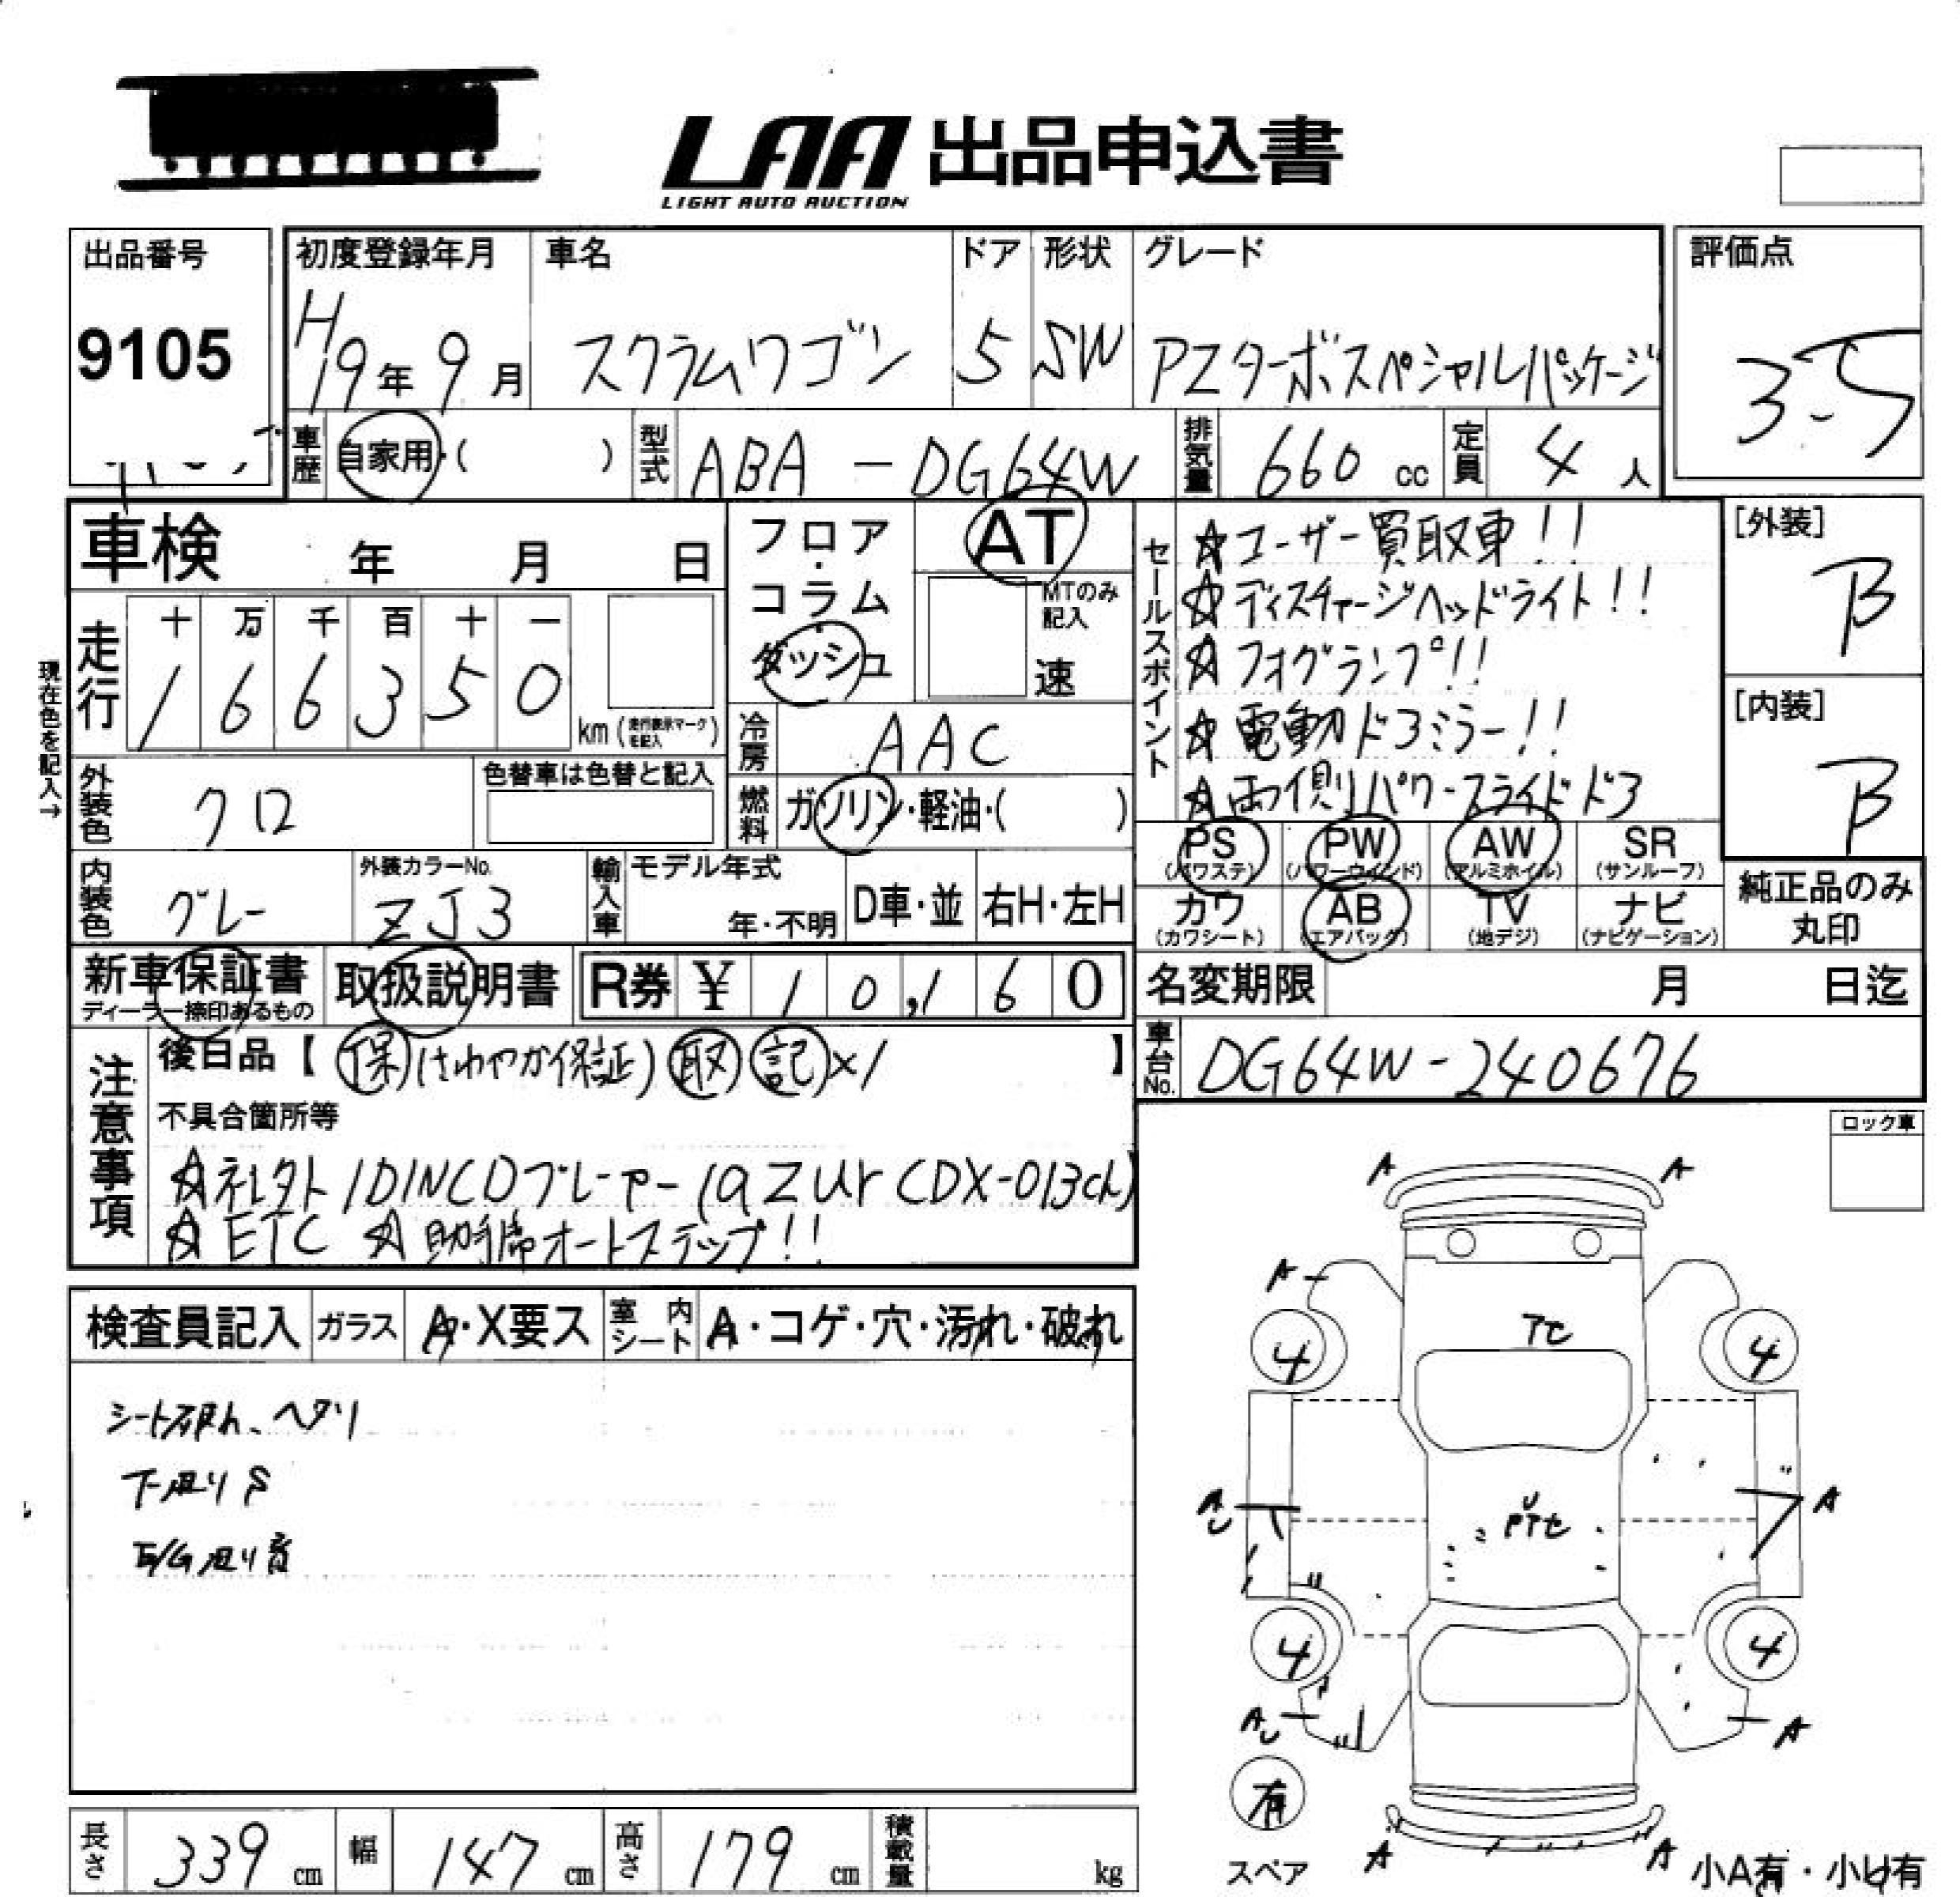 LAA 出品申込書
LIGHT AUTO AUCTION
出品番号
9105
初度登録年月
H19年 9月
車名
スクラムワゴン
ドア
5
形状
SW
グレード
PZターボスペシャルパッケージ
評価点
3.5
車歴
自家用・( )
型式
ABA-DG64W
排気量
660 cc
定員
4 人
車検 年 月 日
フロア・
コラム・
ダッシュ
AT
MTのみ
記入
速
現在色を記入→
走行
十 万 千 百 十 一
1 6 6 3 5 0
km
冷房
AAC
外装色
クロ
色替車は色替と記入
燃料
ガソリン・軽油・( )
内装色
グレー
外装カラーNo.
ZJ3
輸入車
モデル年式
年・不明
D車・並
右H・左H
セールスポイント
☆ユーザー買取車!!
☆ディスチャージヘッドライト!!
☆フォグランプ!!
☆電動ドアミラー!!
☆両側パワースライドドア
[外装]
B
[内装]
B
PS
(パワステ)
PW
(パワーウインド)
AW
(アルミホイル)
SR
(サンルーフ)
カワ
(カワシート)
AB
(エアバック)
TV
(地デジ)
ナビ
(ナビゲーション)
純正品のみ
丸印
新車保証書
ディーラー捺印あるもの
取扱説明書
R券 ¥ 10,160
名変期限 月 日迄
車台No.
DG64W-240676
注意事項
後日品【 保(さわやか保証) 取 記×1 】
不具合箇所等
☆社外1DINCDプレーヤー(aZur CDX-013ch)
☆ETC ☆助手席オートステップ!!
ロック車
検査員記入
ガラス
A・X要ス
室内シート
A・コゲ・穴・汚れ・破れ
シート破れ、ヘタリ
下廻りS
E/G廻り音
A A
A
TC
4 4
A U
A
U
PTC
4 4
A U
A
有
スペア
A A
小A有・小U有
長さ 339 cm
幅 147 cm
高さ 179 cm
積載量 kg